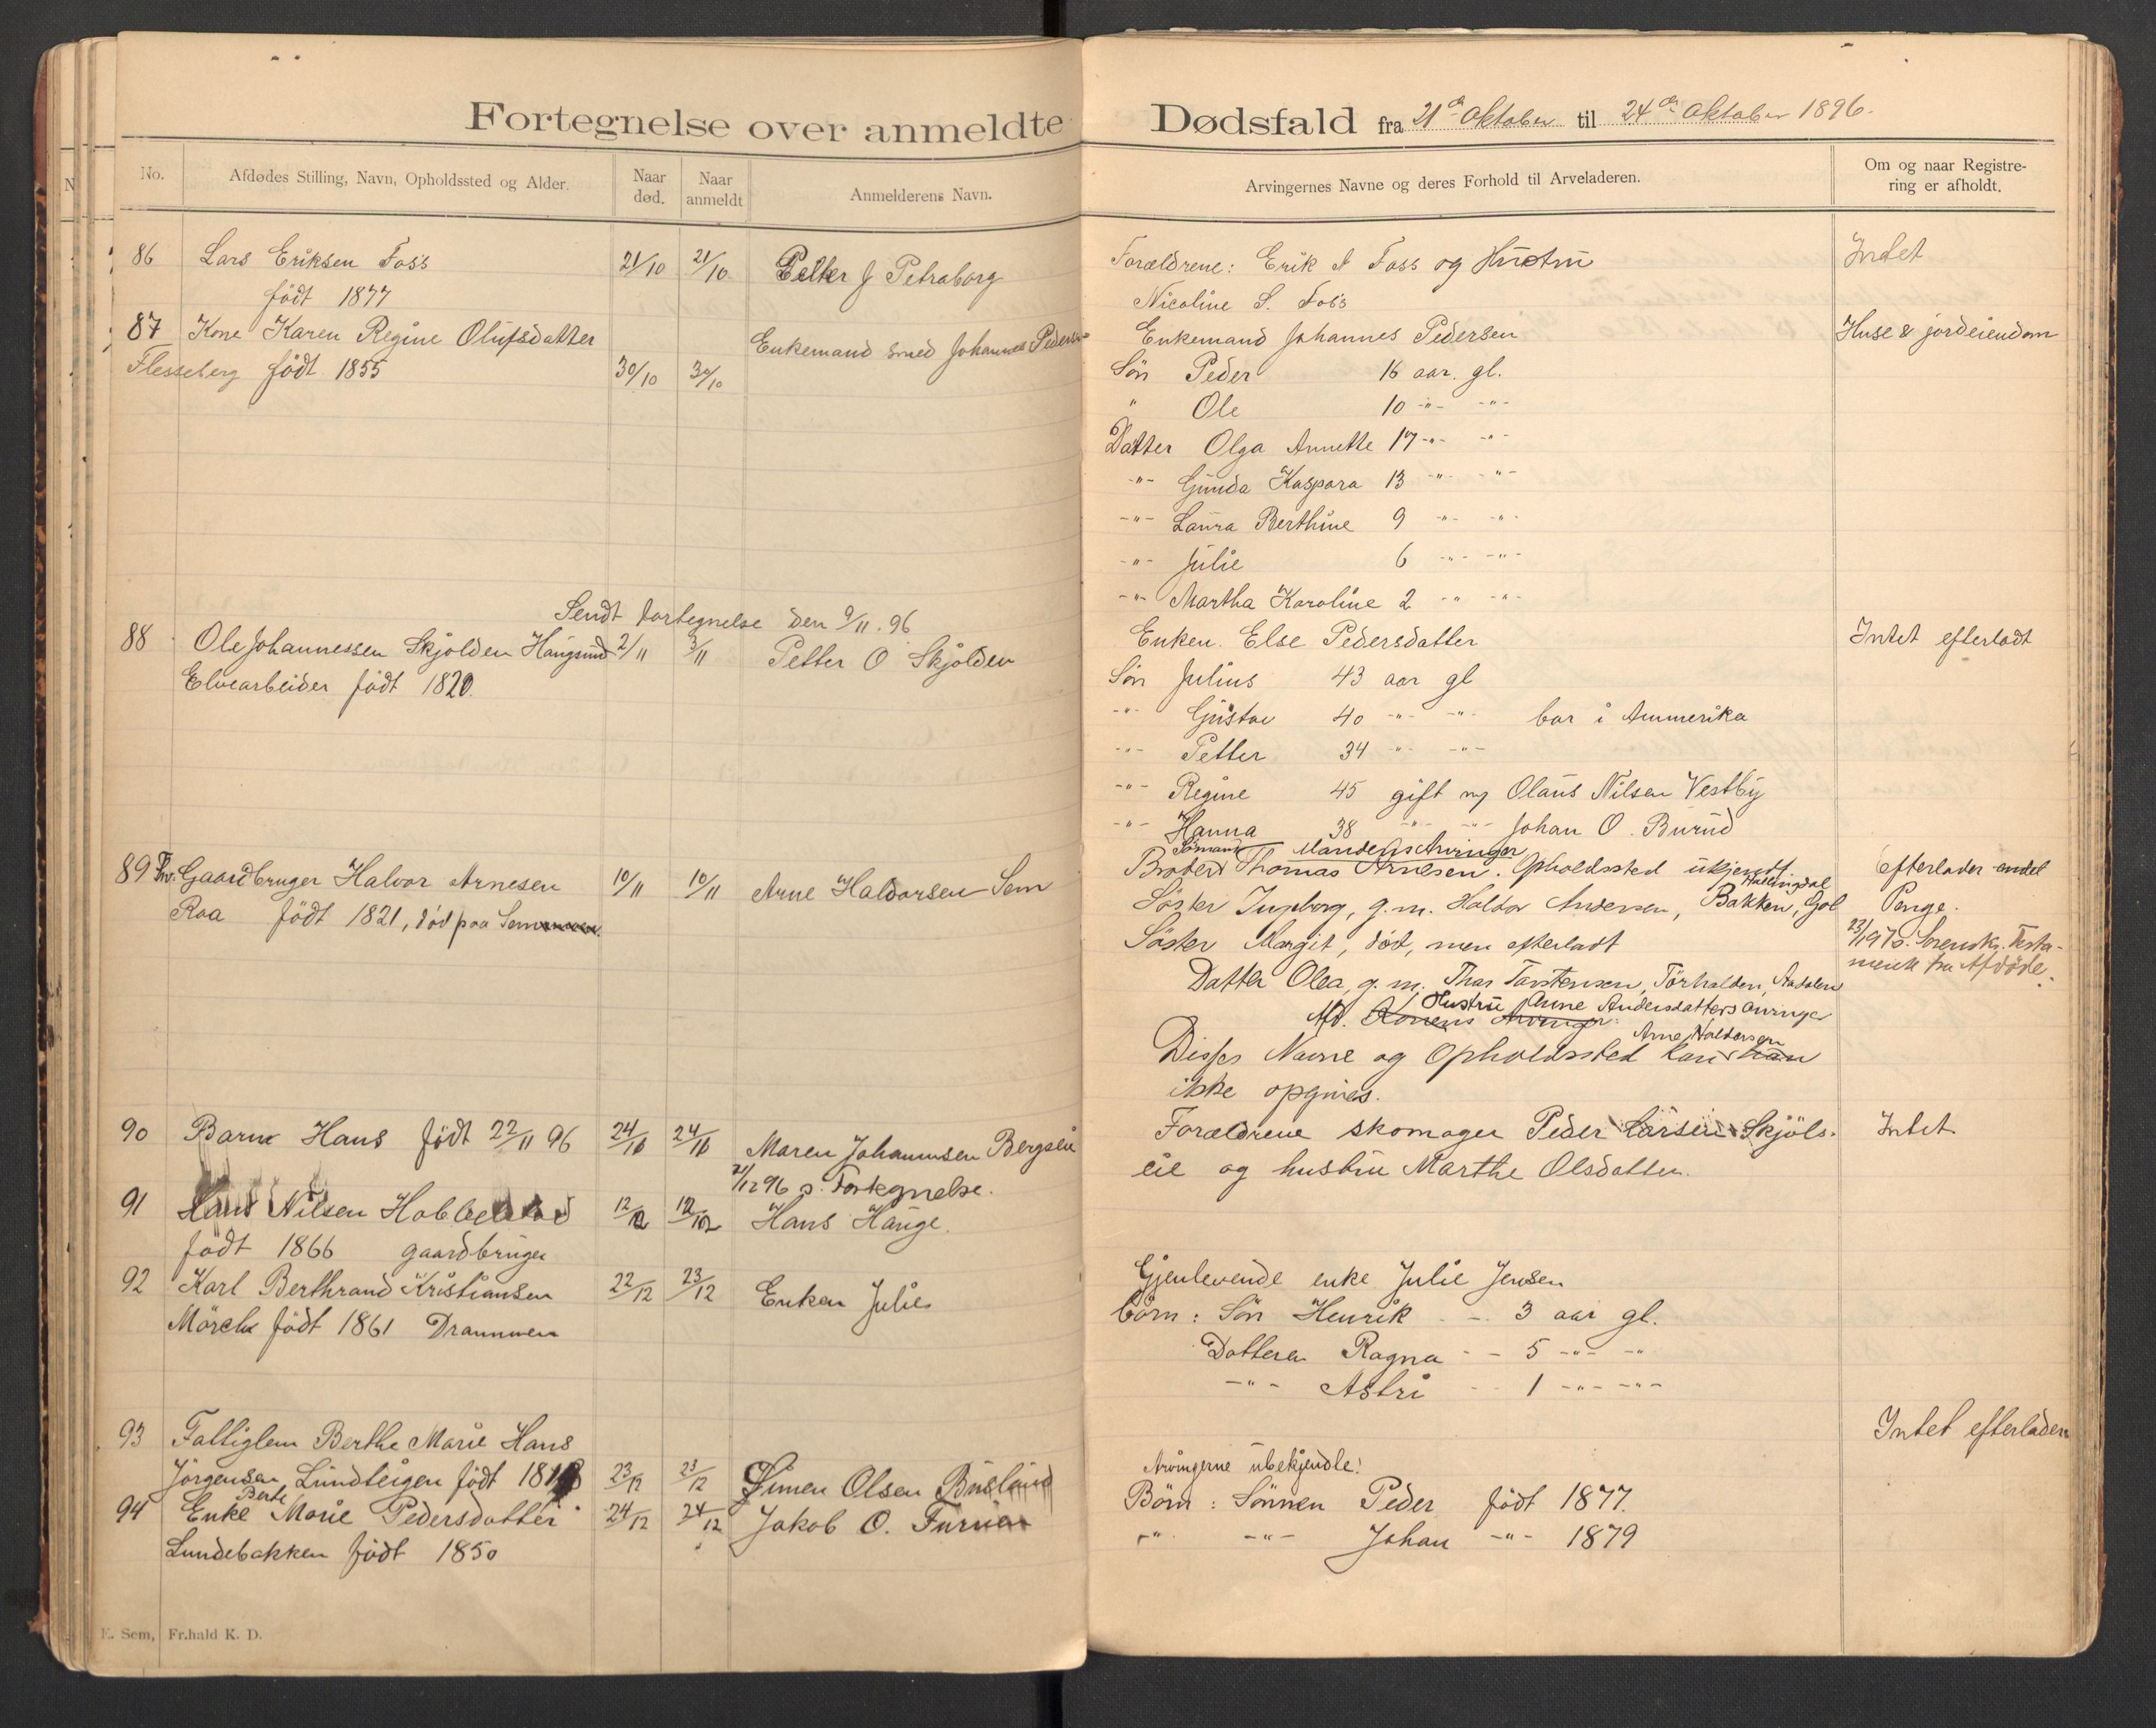 Fortegnelse over anmeldte
No.
Afdødes Stilling, Navn, Opholdssted og Alder.
Naar død.
Naar anmeldt
Anmelderens Navn.
86 Lars Eriksen Foss 21/10 21/10 Petter J Petraborg
född 1877
87 Kone Karen Regine Olufsdatter Enkemand smed Johannes Pedersen
Flesseberg född 1855 30/10 30/10
Sendt fortegnelse den 9/11. 96
88 Ole Johannessen Skjolden Haugsund 2/11 3/11 Petter O Skjolden
Elvearbeider född 1820.
89 Fhv. Gaardbruger Halvor Arnesen 10/11 10/11 Arne Haldorsen Sem
Roa född 1821, död paa Sem
90 Barn Hans född 22/11 96 24/11 24/11 Maren Johannsen
21/12 96 s. Fortegnelse.
91 Hans Nilsen 12/12 12/12 Hans Hauge.
född 1866 gaardbruger
92 Karl Berthrand Kristiansen 22/12 23/12 Enken Julie
Mörch född 1861 Drammen
93 Fattiglem Berthe Marie Hans
Jörgensen Lundteigen född 23/12 23/12 Simen Olsen Busland
94 Enke Berte Marie Pedersdatter 24/12 24/12 Jakob O. Furua
Lundebakken född 1850
E. Sem, Fr.hald K. D.
Dødsfald fra 21de Oktober til 24de Oktober 1896.
Arvingernes Navne og deres Forhold til Arveladeren.
Om og naar Registre-
ring er afholdt.
Forældrene: Erik A Foss og Hustru Intet
Nicoline S. Foss
Enkemand Johannes Pedersen Huse & jordeiendom
Sön Peder 16 aar. gl.
" Ole 10 -"- -"-
Datter Olga Annette 17 -"- -"-
-"- Gunda Kaspara 13 -"- -"-
-"- Laura Berthine 9 -"- -"-
-"- Julie 6 -"- -"-
-"- Martha Karoline 2 -"- -"-
Enken. Else Pedersdatter Intet efterladt
Sön Julius 43 aar gl
-"- Gustav 40 -"- -"- bor i Ammerika
-"- Petter 34 -"- -"-
-"- Regine 45 gift m/ Olaus Nilsen Vestby
-"- Hanna 38 -"- -"- Johan O. Burud
Mandens Arvinger
Sömand
Broder Thomas Arnesen. Opholdssted ukjendt. efterlader endel
Hallingdal
Söster Ingeborg, g. m. Haldor Andersen, Bakken, Gol Penge.
Söster Margit, död, men efterladt 23/1 97 s. Sorensk. Testa-
mente fra Afdöde.
Datter Olea, g. m. Thor Torstensen, Törhalden, Aadalen
Hustru Anne Andersdatters arvinger
Afd. Konens Arvinger.
Arne Haldorsen
Disses Navne og Opholdssted kan han
ikke opgives.
Forældrene skomager Peder Larsen Skjöls- Intet.
eie og hustru Marthe Olsdatter.
Gjenlevende enke Julie Jensen
börn: Sön Henrik - - 3 aar gl.
Dattera Ragna - - 5 -"- -"-
-"- Astri - - 1 -"- -"-
Intet efterladen
Arvingerne ubekjendte!
Börn: Sönnen Peder född 1877.
-"- -"- Johan -"- 1879